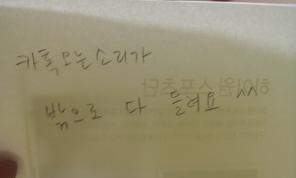 카톡오는소리가
밖으로 다 들려요 ^^